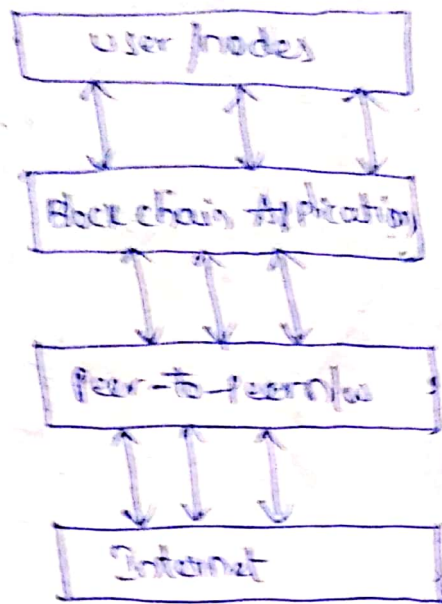 user/nodes
Block chain Application
Peer-to-peer n/w
Internet